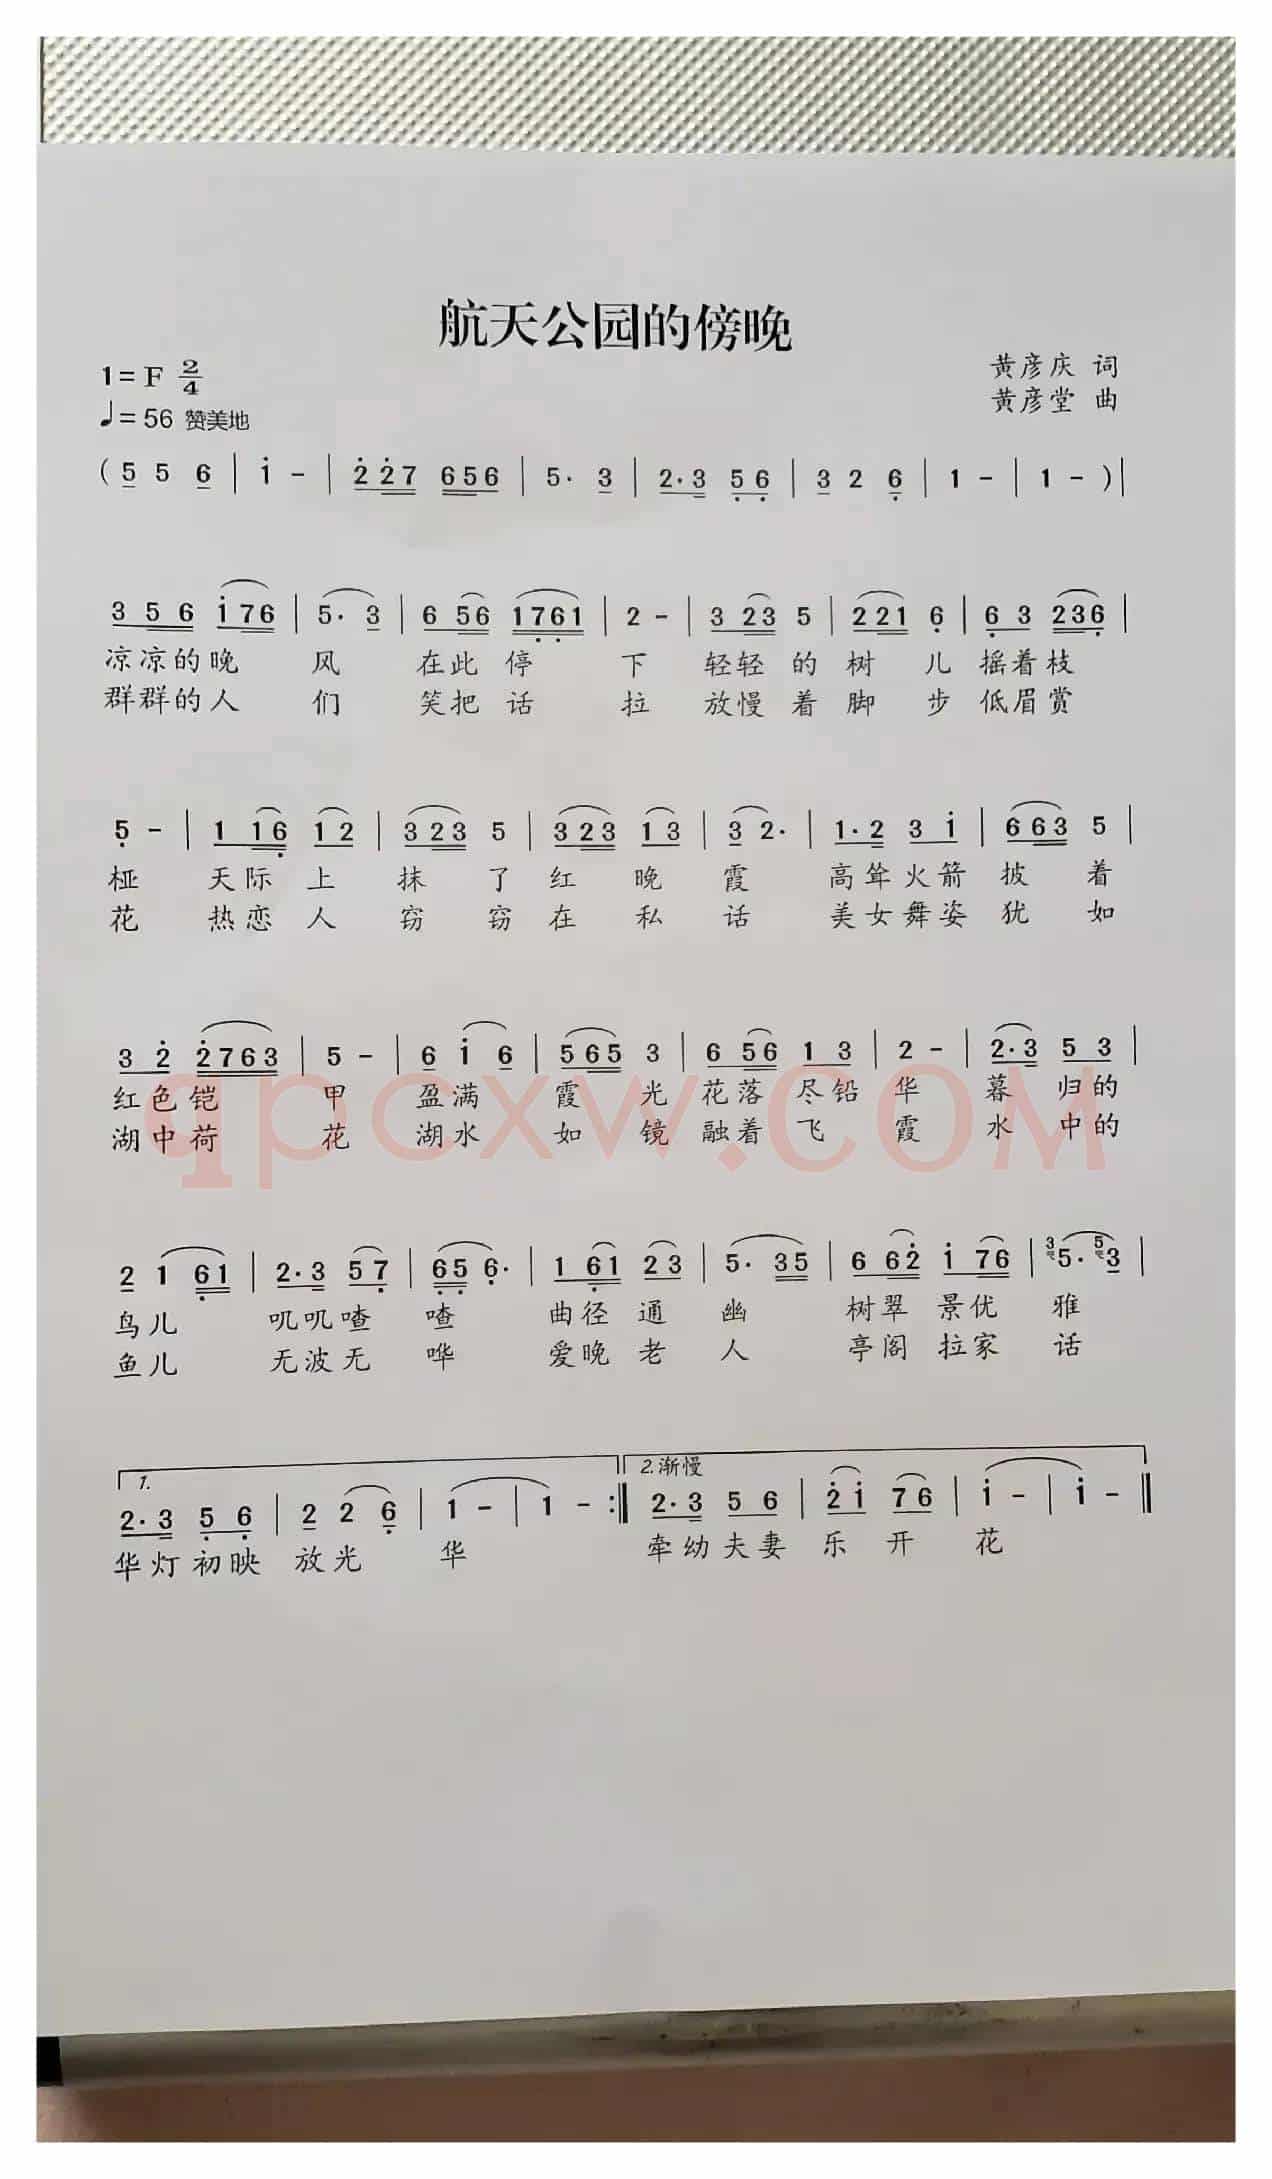 航天公园的傍晚
1=F 2/4
黄彦庆 词
♩=56 赞美地
黄彦堂 曲
( 5 5 6 | i - | 2̇ 2̇ 7 6 5 6 | 5· 3 | 2·3 5̣ 6̣ | 3 2 6̣ | 1 - | 1 - ) |
3 5 6 i 7 6 | 5· 3 | 6 5 6 1 7̣ 6̣ 1 | 2 - | 3 2 3 5 | 2 2 1 6̣ | 6̣ 3 2 3 6̣ |
凉凉的晚 风 在此停 下 轻轻的树 儿 摇着枝
群群的人 们 笑把话 拉 放慢着脚 步 低眉赏
5̣ - | 1 1 6̣ 1 2 | 3 2 3 5 | 3 2 3 1 3 | 3 2· | 1·2 3 i | 6 6 3 5 |
桠 天际上 抹 了 红 晚 霞 高耸火箭 披 着
花 热恋人 窃 窃 在 私 话 美女舞姿 犹 如
3 2̇ 2̇ 7 6 3 | 5 - | 6 i 6 | 5 6 5 3 | 6 5 6 1 3 | 2 - | 2·3 5 3 |
红色铠 甲 盈满 霞 光 花落尽铅 华 暮 归的
湖中荷 花 湖水 如 镜 融着飞 霞 水 中的
qpcxw.COM
2 1 6̣ 1 | 2·3 5 7̣ | 6̣ 5̣ 6̣· | 1 6̣ 1 2 3 | 5· 3 5 | 6 6 2̇ i 7 6 | 3 5· 5 3 |
鸟儿 叽叽喳 喳 曲径通 幽 树翠景优 雅
鱼儿 无波无 哗 爱晚老 人 亭阁拉家 话
1. 2.渐慢
2·3 5̣ 6̣ | 2 2 6̣ | 1 - | 1 - :‖ 2·3 5 6 | 2̇ i 7 6 | i - | i - ‖
华灯初映 放光 华 牵幼夫妻 乐 开 花